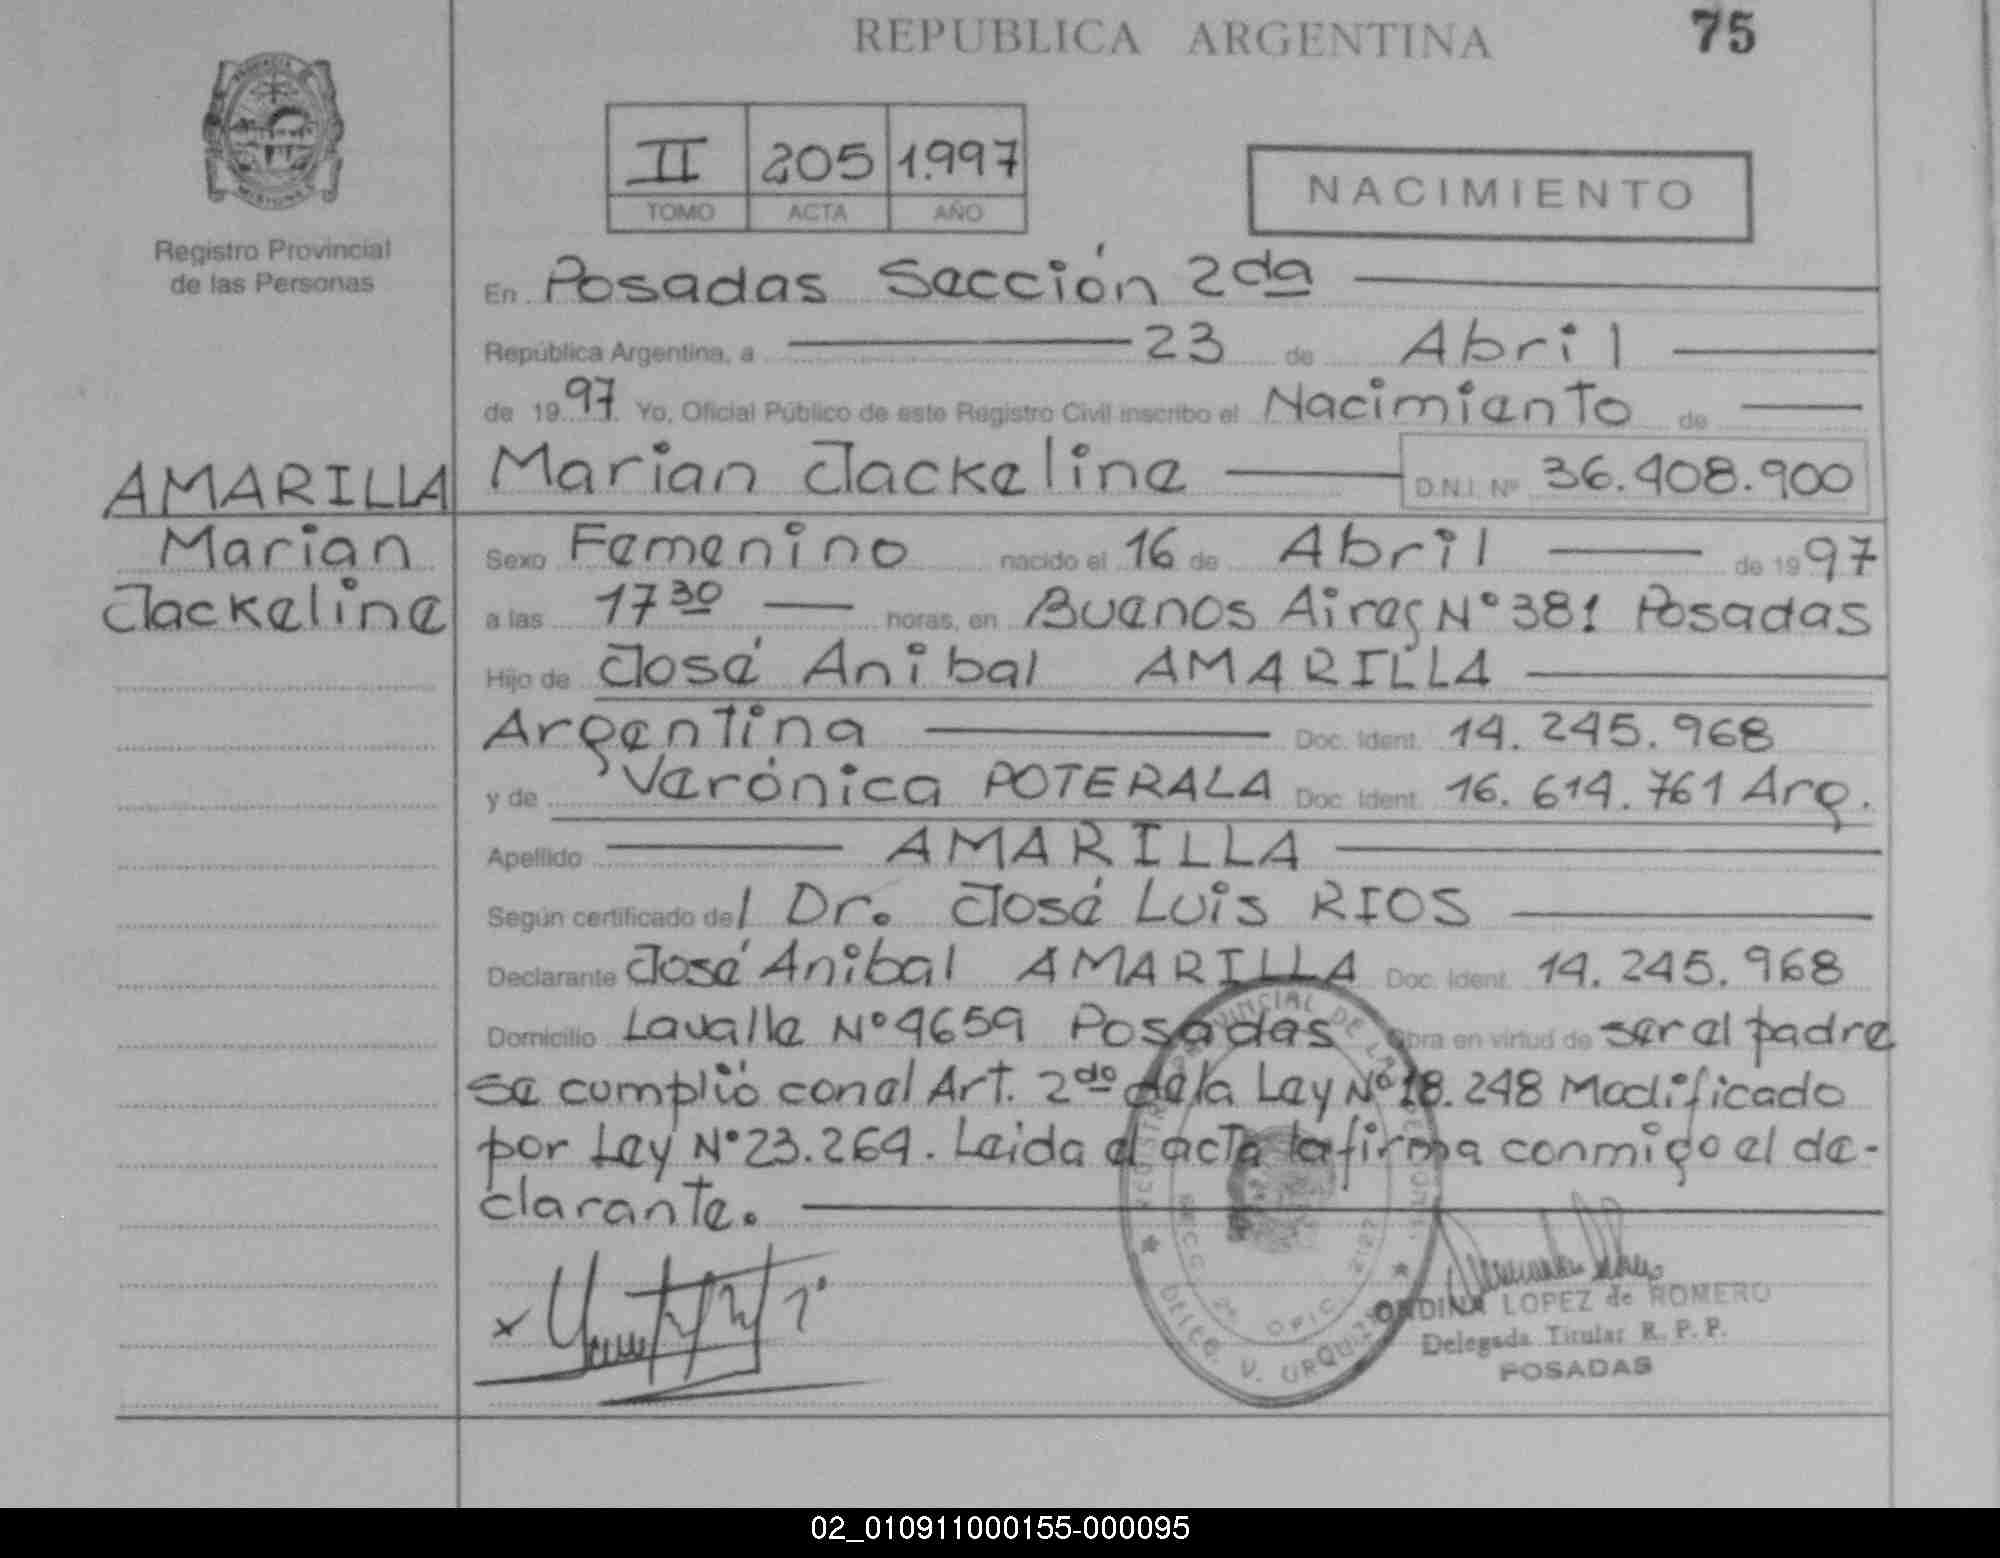 REPUBLICA ARGENTINA
75
II 205 1.997
TOMO ACTA AÑO
NACIMIENTO
Registro Provincial
de las Personas
En Posadas Sección 2da
República Argentina, a 23 de Abril
de 1997 Yo, Oficial Público de este Registro Civil inscribo el Nacimiento de
AMARILLA
Marian
Jackeline
Marian Jackeline D.N.I. Nº 36.408.900
Sexo Femenino nacido el 16 de Abril de 1997
a las 17 30 horas, en Buenos Aires Nº 381 Posadas
Hijo de José Anibal AMARILLA
Argentina Doc. Ident. 14.245.968
y de Verónica POTERALA Doc. Ident. 16.614.761 Arg.
Apellido AMARILLA
Según certificado del Dr. José Luis RIOS
Declarante José Anibal AMARILLA Doc. Ident. 14.245.968
Domicilio Lavalle Nº 4659 Posadas Obra en virtud de ser el padre
se cumplió con el Art. 2do de la Ley Nº 18.248 Modificado
por Ley Nº 23.264. Leida el acta la firma conmigo el de-
clarante.
ONDINA LOPEZ de ROMERO
Delegada Titular R. P. P.
POSADAS
02_010911000155-000095